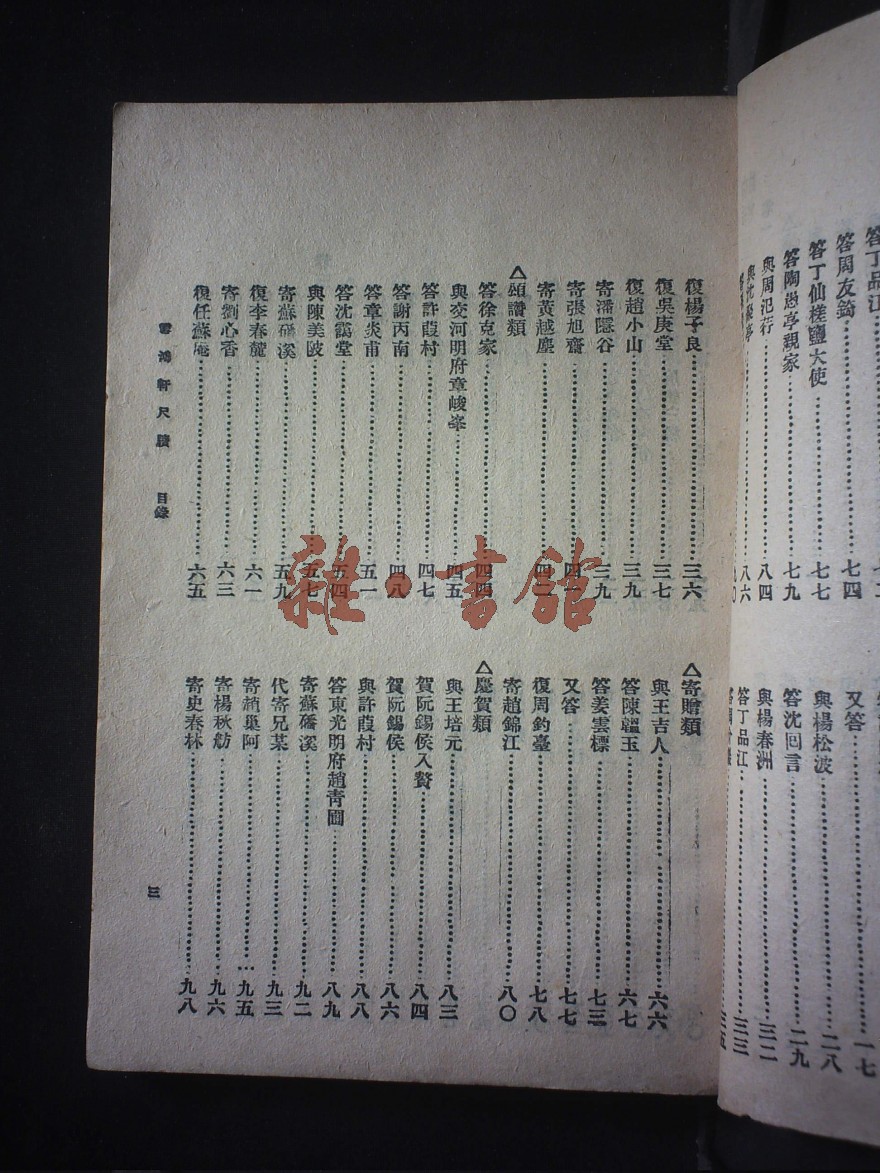 答丁品江
答周友錡……七四
答丁仙槎鹽大使……七七
答陶愚亭親家……七九
與周氾荇……八四
八六
又答……一七
與楊松波……二八
答沈回言……二九
與楊春洲……三二
答丁品江……三三
復楊子良……三六
復吳庚堂……三七
復趙小山……三九
寄潘隱谷……三九
寄張旭齋……四一
寄黃越塵……四二
△頌讚類
答徐克家……四四
與交河明府章峻峯……四五
答許葭村……四七
答謝丙南……四八
答章炎甫……五一
答沈靄堂……五四
與陳美陂……五七
寄蘇磻溪……五九
復李春麓……六一
寄劉心香……六三
復任蘇庵……六五
△寄贈類
與王吉人……六六
答陳韞玉……六七
答姜雲標……七三
又答……七七
復周鈞臺……七八
寄趙錦江……八〇
△慶賀類
與王培元……八三
賀阮錫侯入贅……八四
賀阮錫侯……八六
與許葭村……八八
答東光明府趙青圃……八九
寄蘇磻溪……九二
代寄兄某……九三
寄趙巢阿……九五
寄楊秋舫……九六
寄史春林……九八
雪鴻軒尺牘 目錄
三
雜·書館